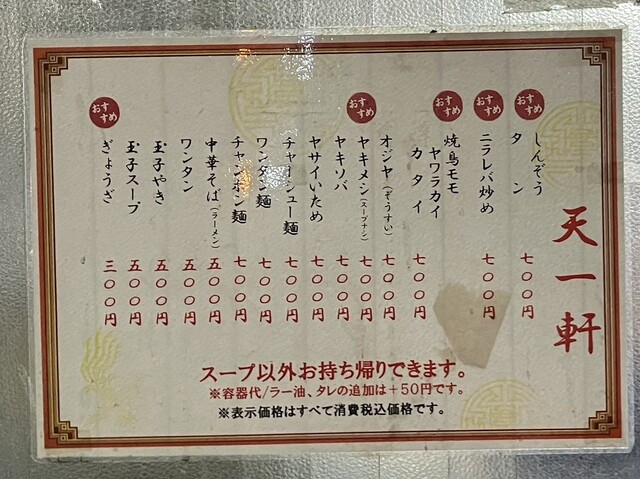 天一軒
しんぞう
おすすめ
タン 七〇〇円
おすすめ
ニラレバ炒め 七〇〇円
おすすめ
焼鳥モモ
ヤワラカイ
カタイ 七〇〇円
オジヤ(ぞうすい) 七〇〇円
おすすめ
ヤキメシ(スープナシ) 七〇〇円
ヤキソバ 七〇〇円
ヤサイいため 七〇〇円
チャーシュー麺 七〇〇円
ワンタン麺 七〇〇円
チャンポン麺 七〇〇円
中華そば(ラーメン) 五〇〇円
ワンタン 五〇〇円
玉子やき 五〇〇円
玉子スープ 五〇〇円
おすすめ
ぎょうざ 三〇〇円
スープ以外お持ち帰りできます。
※容器代/ラー油、タレの追加は＋50円です。
※表示価格はすべて消費税込価格です。